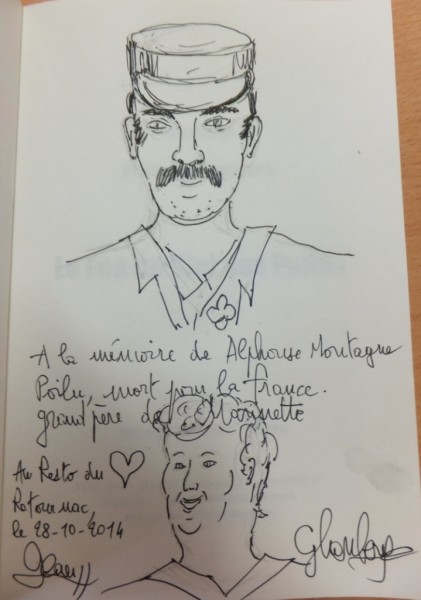 A la mémoire de Alphonse Montagne
Poilu, mort pour la France.
grand père de Marinette
Au Resto du
Retournac,
le 28-10-2014